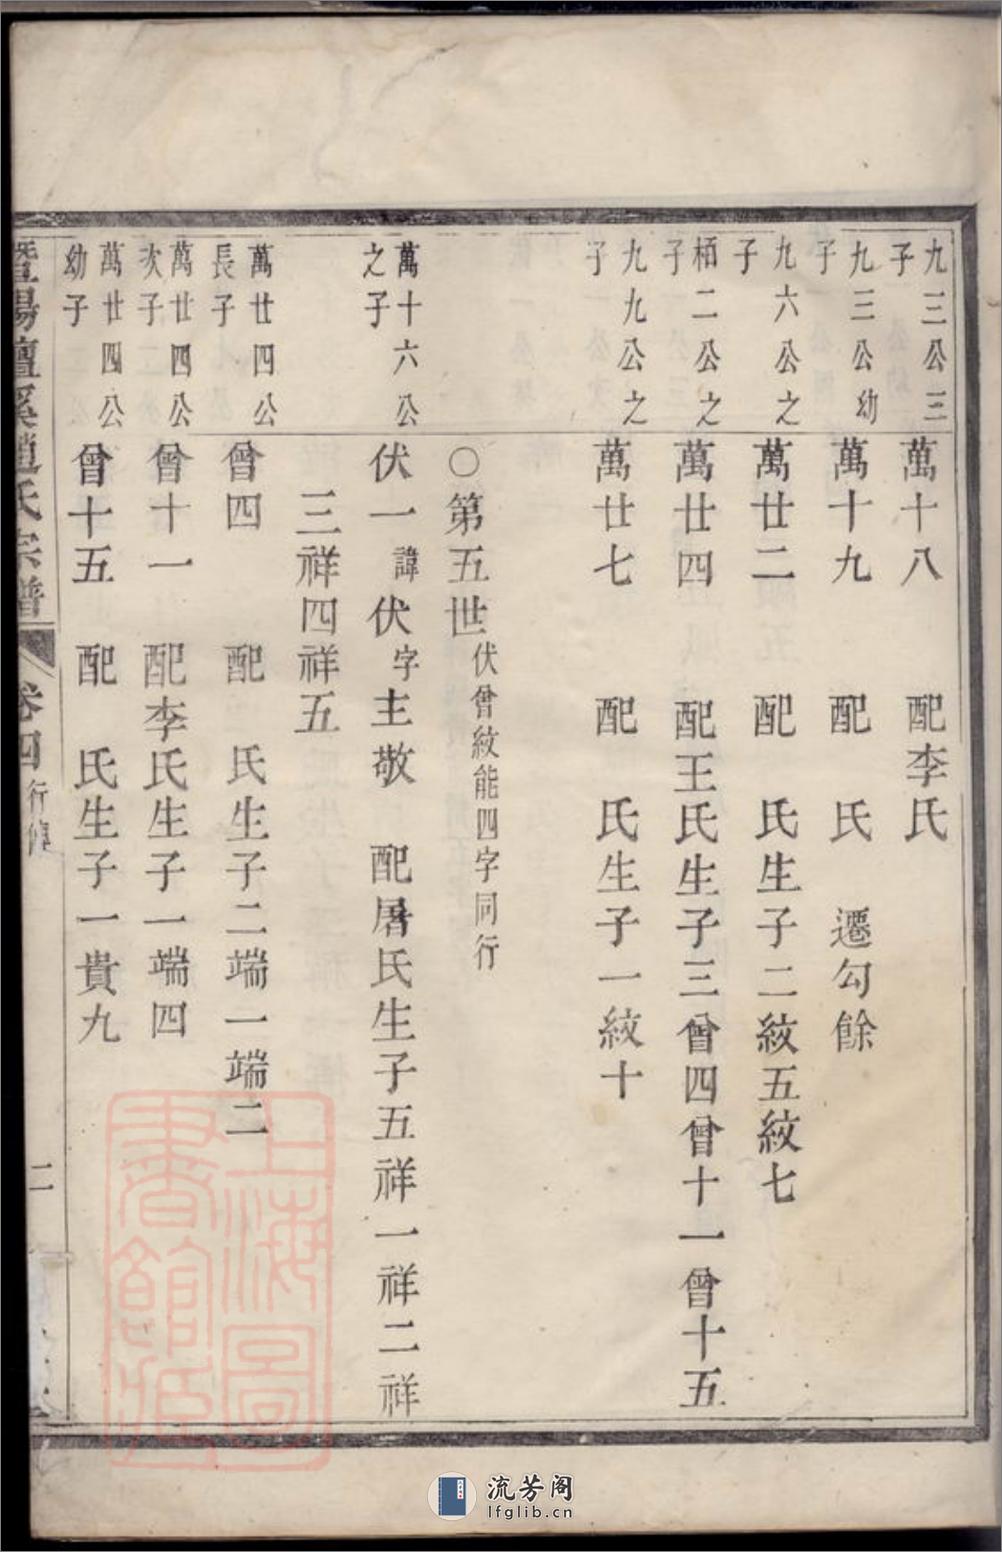 九三公三子
萬十八　配李氏
九三公幼子
萬十九　配　氏　遷勾餘
九六公之子
萬廿二　配　氏生子二紋五紋七
栢二公之子
萬廿四　配王氏生子三曾四曾十一曾十五
九九公之子
萬廿七　配　氏生子一紋十
〇第五世伏曾紋能四字同行
萬十六公之子
伏一諱伏字主敬　配屠氏生子五祥一祥二祥
三祥四祥五
萬廿四公長子
曾四　配　氏生子二端一端二
萬廿四公次子
曾十一　配李氏生子一端四
萬廿四公幼子
曾十五　配　氏生子一貴九
暨陽壇溪趙氏宗譜　卷四　行傳　二
上海圖書館藏
流芳阁
lfglib.cn